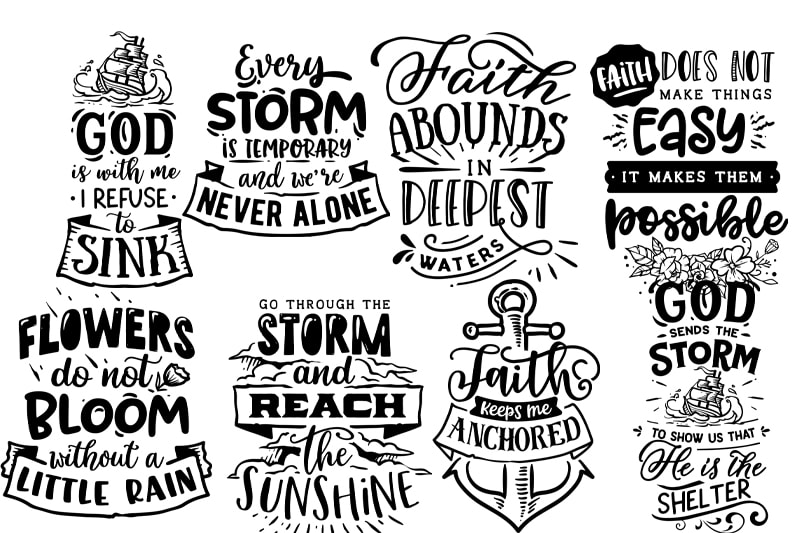 GOD
is with me
I REFUSE
to
SINK
Every
STORM
IS TEMPORARY
and we're
NEVER ALONE
Faith
ABOUNDS
IN
DEEPEST
WATERS
FAITH DOES NOT
MAKE THINGS
EASY
IT MAKES THEM
possible
FLOWERS
do not
BLOOM
without a
LITTLE RAIN
GO THROUGH THE
STORM
and
REACH
the
SUNSHINE
Faith
KEEPS ME
ANCHORED
GOD
SENDS THE
STORM
TO SHOW US THAT
He is the
SHELTER